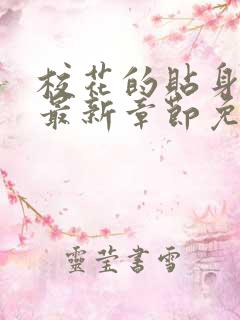 校花的貼身
最新章節免
靈莹書雪